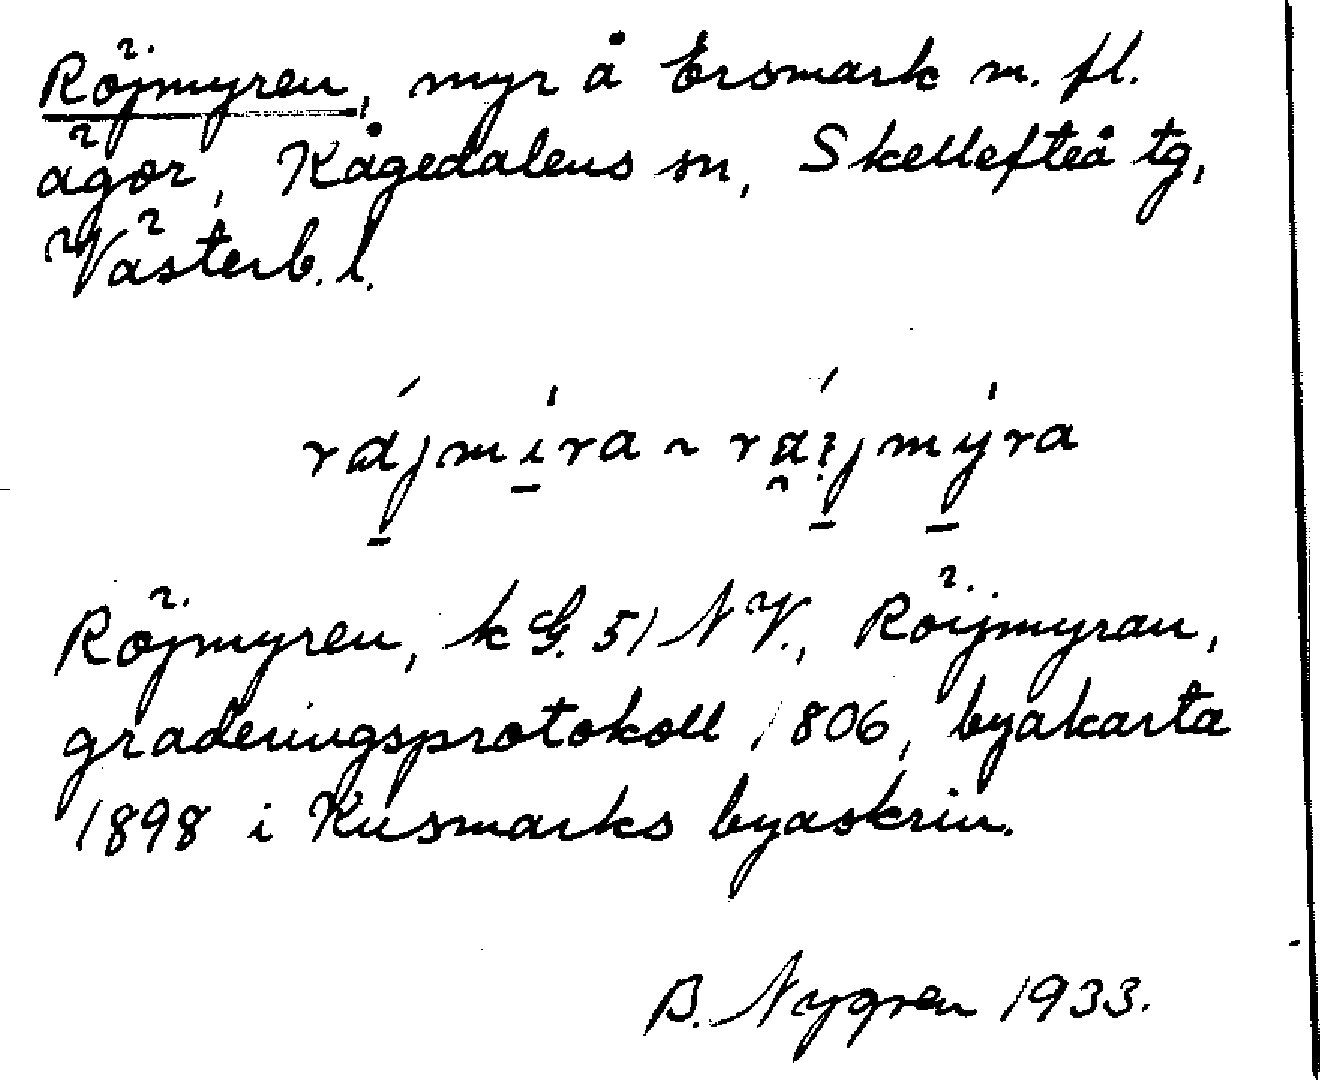 Röjmyren, myr å Ersmark m. fl.
ägor, Kågedalens sn, Skellefteå tg,
Västerb. l.
Röjmyren, k G. 51 NV., Röijmyran,
graderingsprotokoll 1806, byakarta
1898 i Kusmarks byaskrin.
B. Nygren 1933.